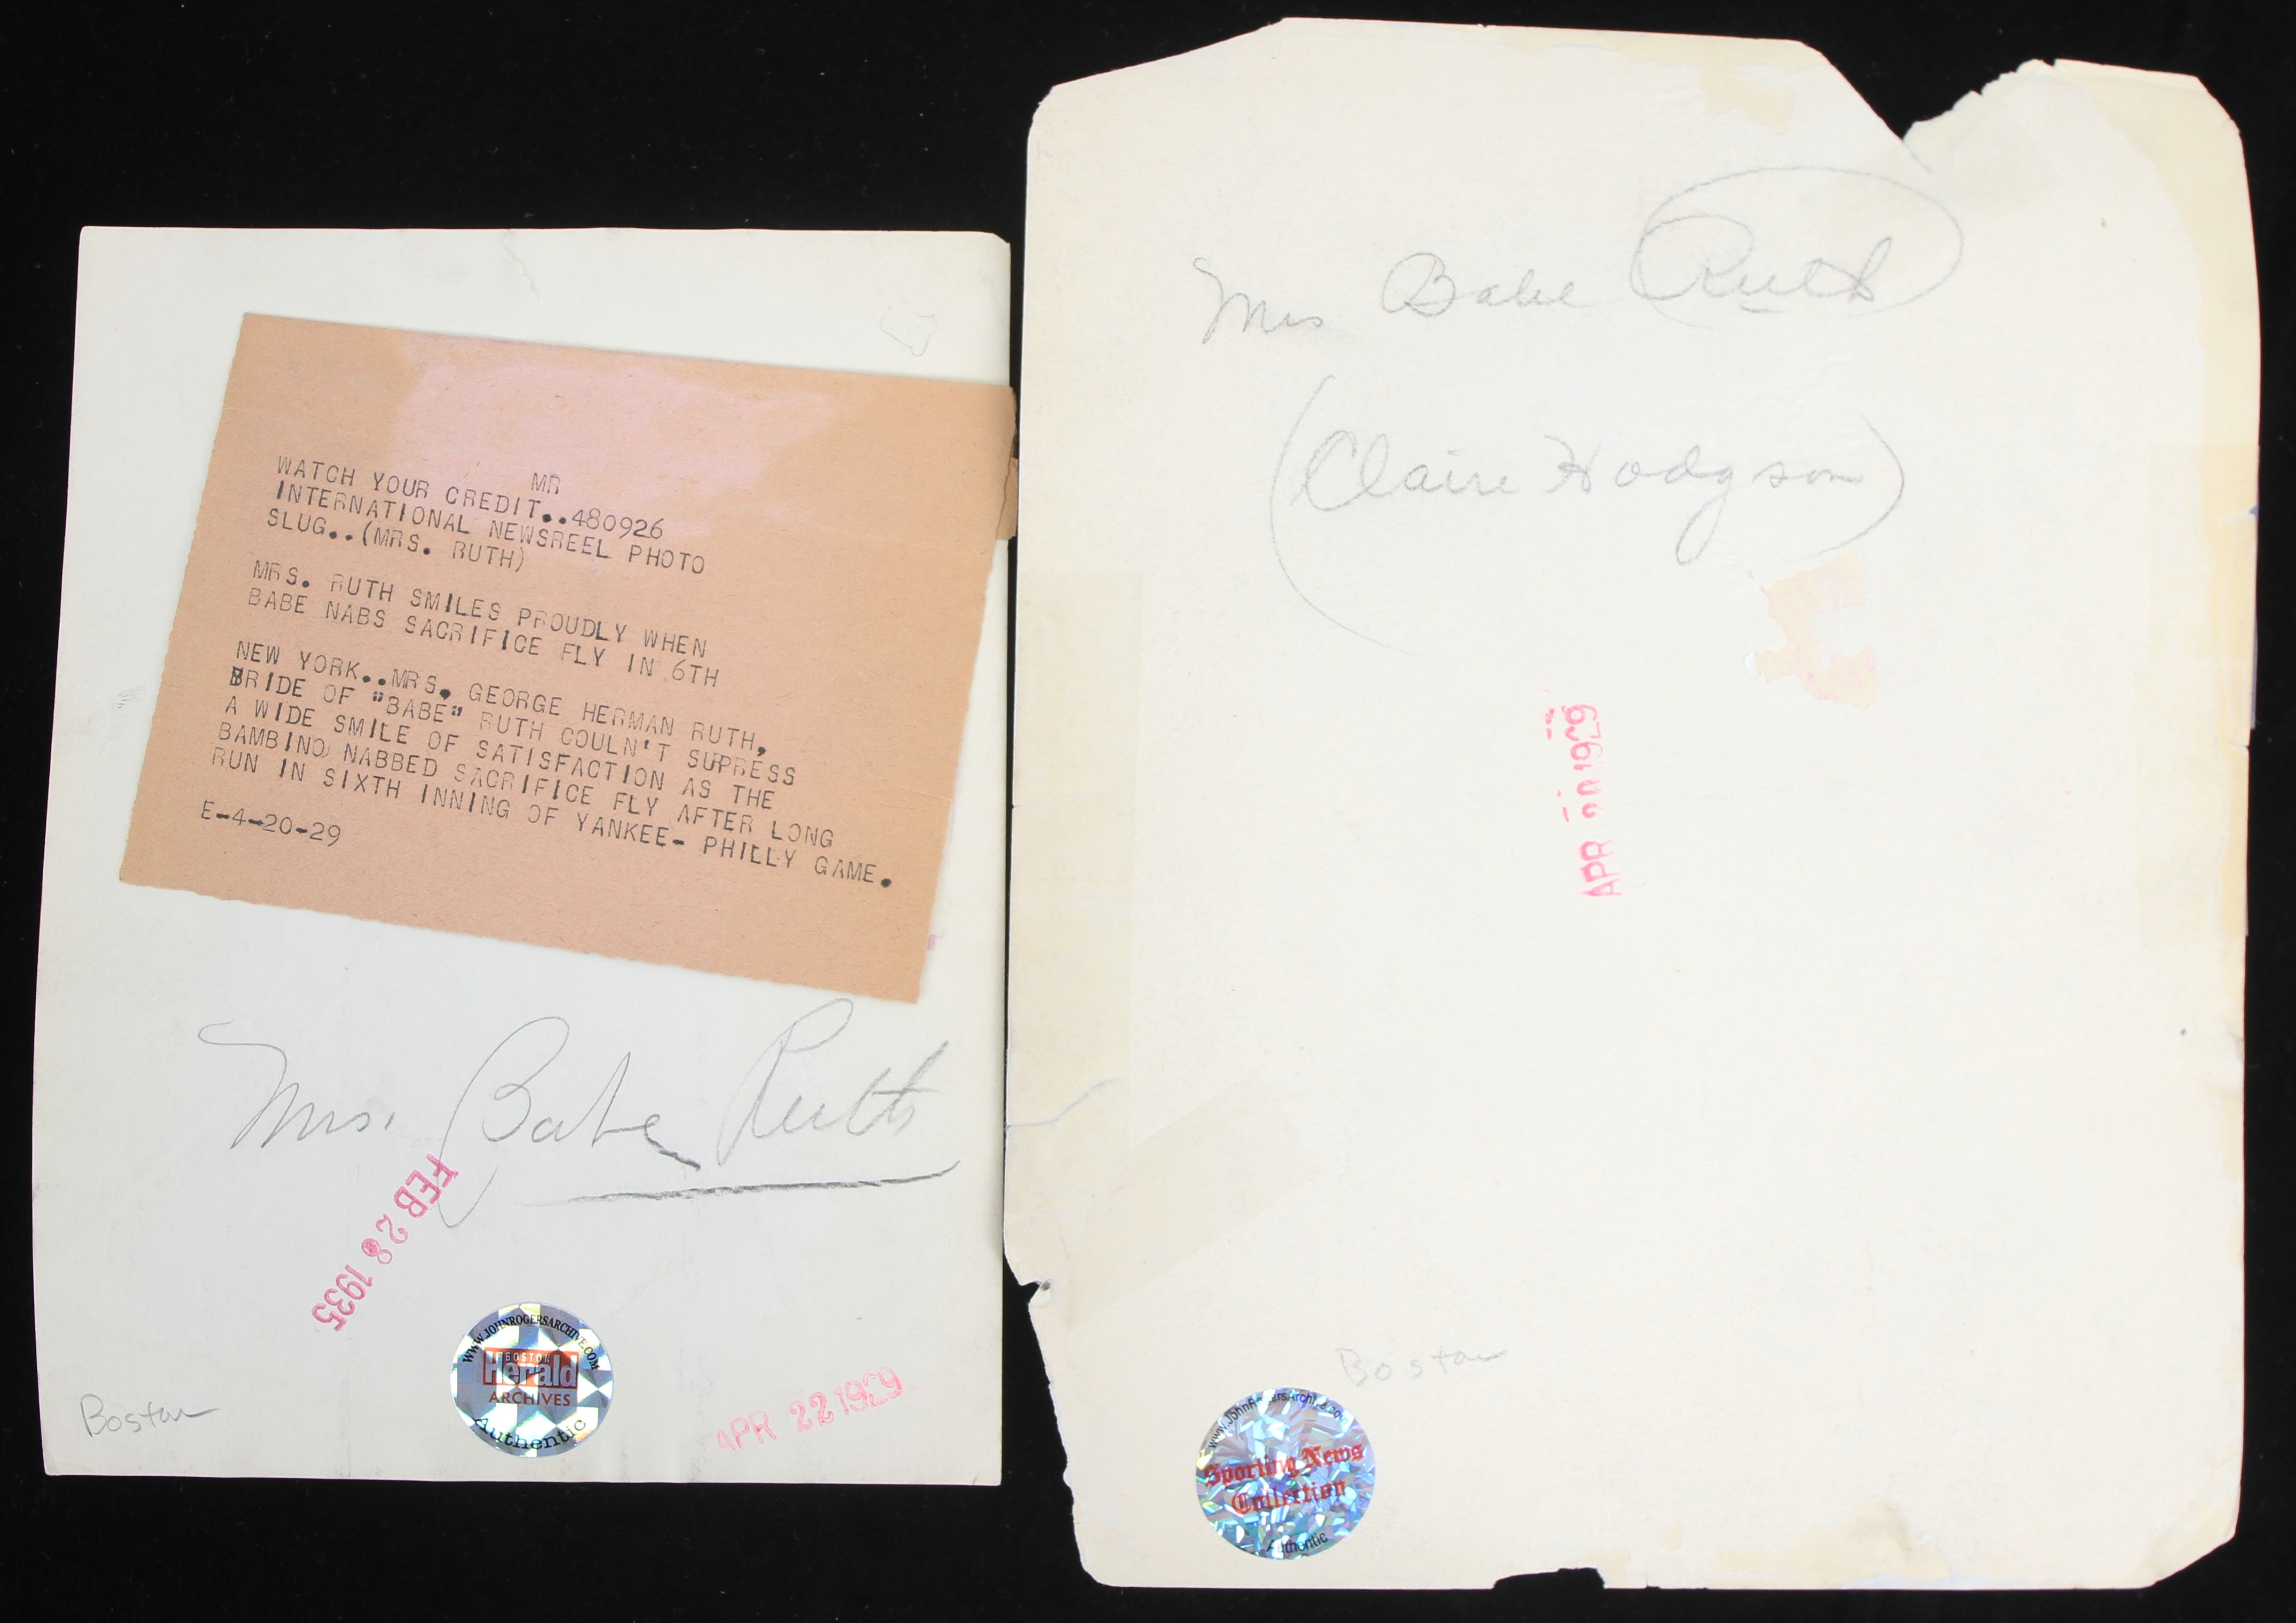 MR
WATCH YOUR CREDIT..480926
INTERNATIONAL NEWSREEL PHOTO
SLUG..(MRS. RUTH)
MRS. RUTH SMILES PROUDLY WHEN
BABE NABS SACRIFICE FLY IN 6TH
NEW YORK..MRS. GEORGE HERMAN RUTH,
BRIDE OF "BABE" RUTH COULN'T SUPRESS
A WIDE SMILE OF SATISFACTION AS THE
BAMBINO NABBED SACRIFICE FLY AFTER LONG
RUN IN SIXTH INNING OF YANKEE- PHILLY GAME.
E-4-20-29
Mrs. Babe Ruth
FEB 28 1935
WWW.JOHNROGERSARCHIVE.COM
BOSTON
Herald
ARCHIVES
Authentic
APR 22 1929
Boston
Mrs Babe Ruth
(Claire Hodgson)
APR 20 1929
Boston
www.JohnRogersArchive.com
Sporting News
Collection
Authentic